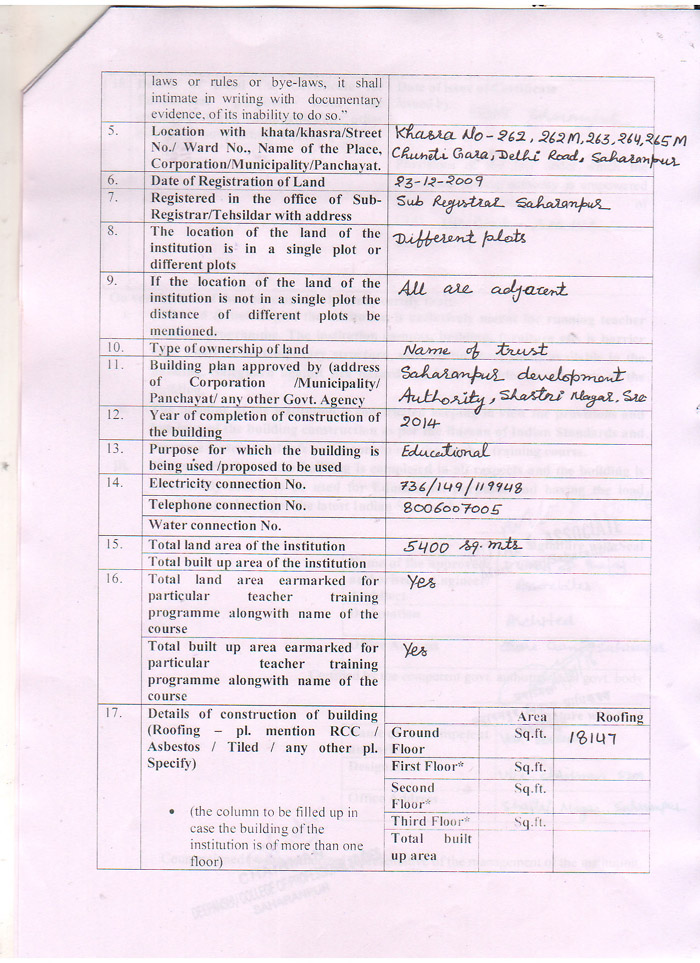 laws or rules or bye-laws, it shall
intimate in writing with documentary
evidence, of its inability to do so."
5. Location with khata/khasra/Street Khasra No - 262, 262M, 263, 264, 265M
No./ Ward No., Name of the Place, Chuneti Gara, Delhi Road, Saharanpur
Corporation/Municipality/Panchayat.
6. Date of Registration of Land 23-12-2009
7. Registered in the office of Sub- Sub Registrar Saharanpur
Registrar/Tehsildar with address
8. The location of the land of the Different plots
institution is in a single plot or
different plots
9. If the location of the land of the All are adjacent
institution is not in a single plot the
distance of different plots be
mentioned.
10. Type of ownership of land Name of trust
11. Building plan approved by (address Saharanpur development
of Corporation /Municipality/
Panchayat/ any other Govt. Agency Authority, Shastri Nagar, Sre
12. Year of completion of construction of 2014
the building
13. Purpose for which the building is Educational
being used /proposed to be used
14. Electricity connection No. 736/149/119948
Telephone connection No. 8006007005
Water connection No.
15. Total land area of the institution 5400 sq. mts
Total built up area of the institution
16. Total land area earmarked for Yes
particular teacher training
programme alongwith name of the
course
Total built up area earmarked for Yes
particular teacher training
programme alongwith name of the
course
17. Details of construction of building Area Roofing
(Roofing – pl. mention RCC / Ground Sq.ft. 18147
Asbestos / Tiled / any other pl. Floor
Specify) First Floor* Sq.ft.
Second Sq.ft.
Floor*
• (the column to be filled up in Third Floor* Sq.ft.
case the building of the Total built
institution is of more than one up area
floor)